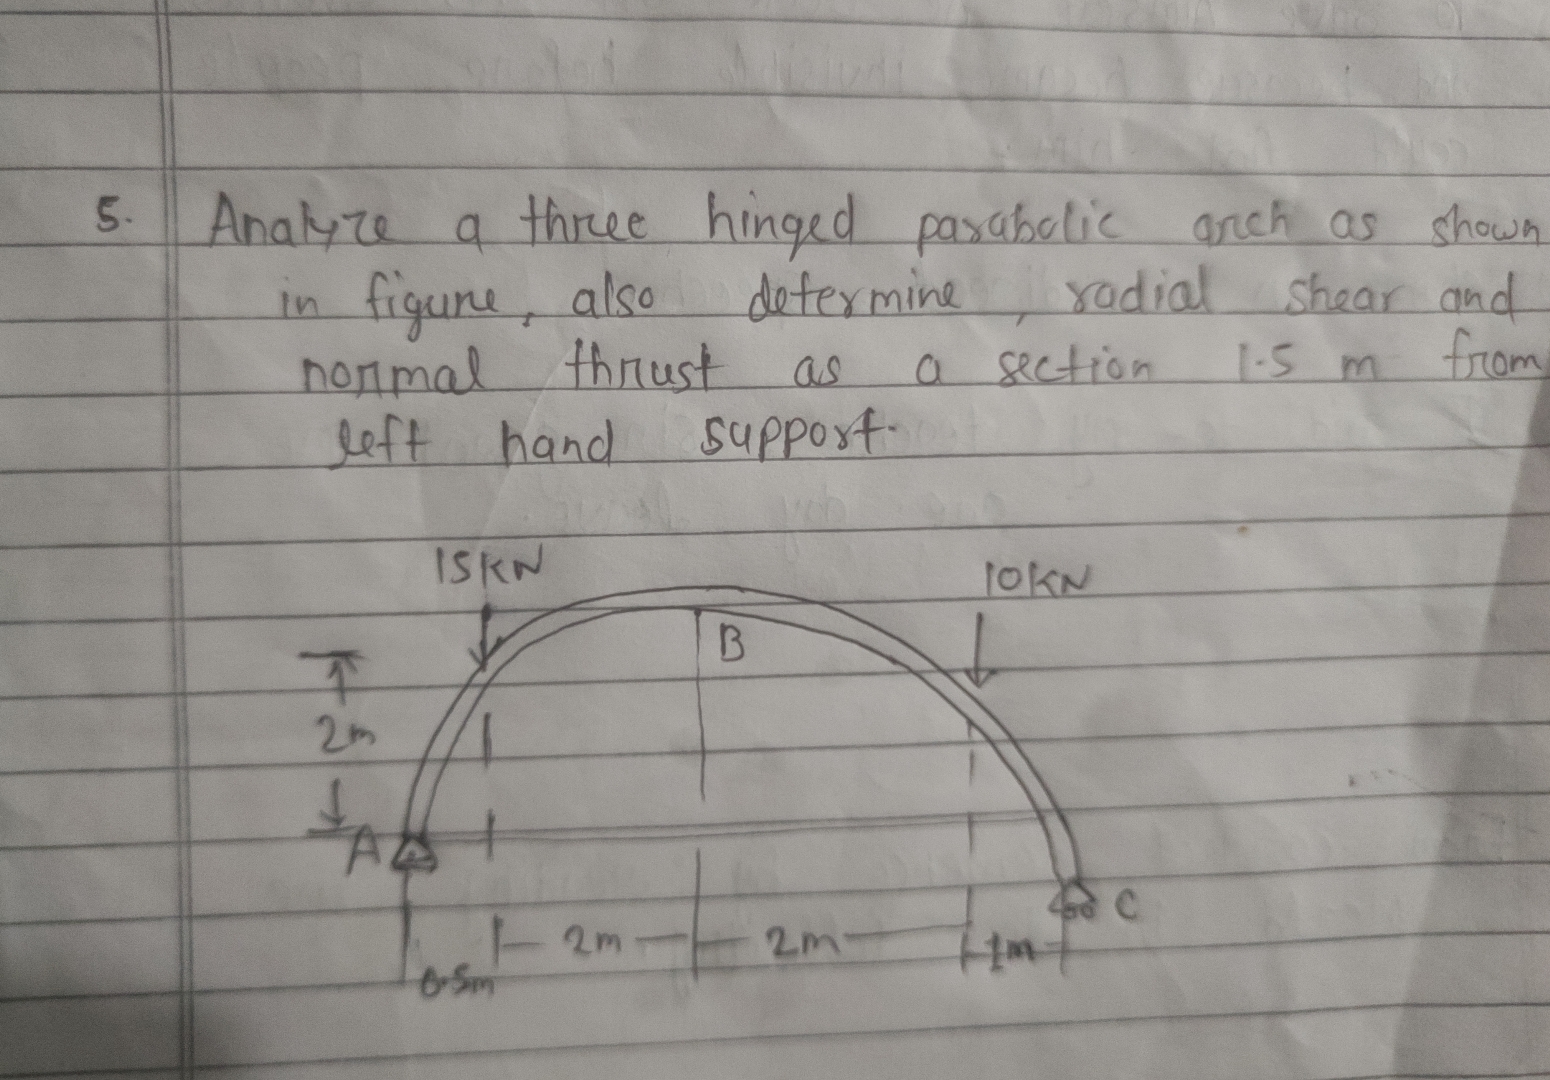 5. Analyze a three hinged parabolic arch as shown
in figure, also determine, radial shear and
normal thrust as a section 1.5 m from
left hand support.
15KN
10KN
B
2m
A
C
2m
2m
1m
0.5m